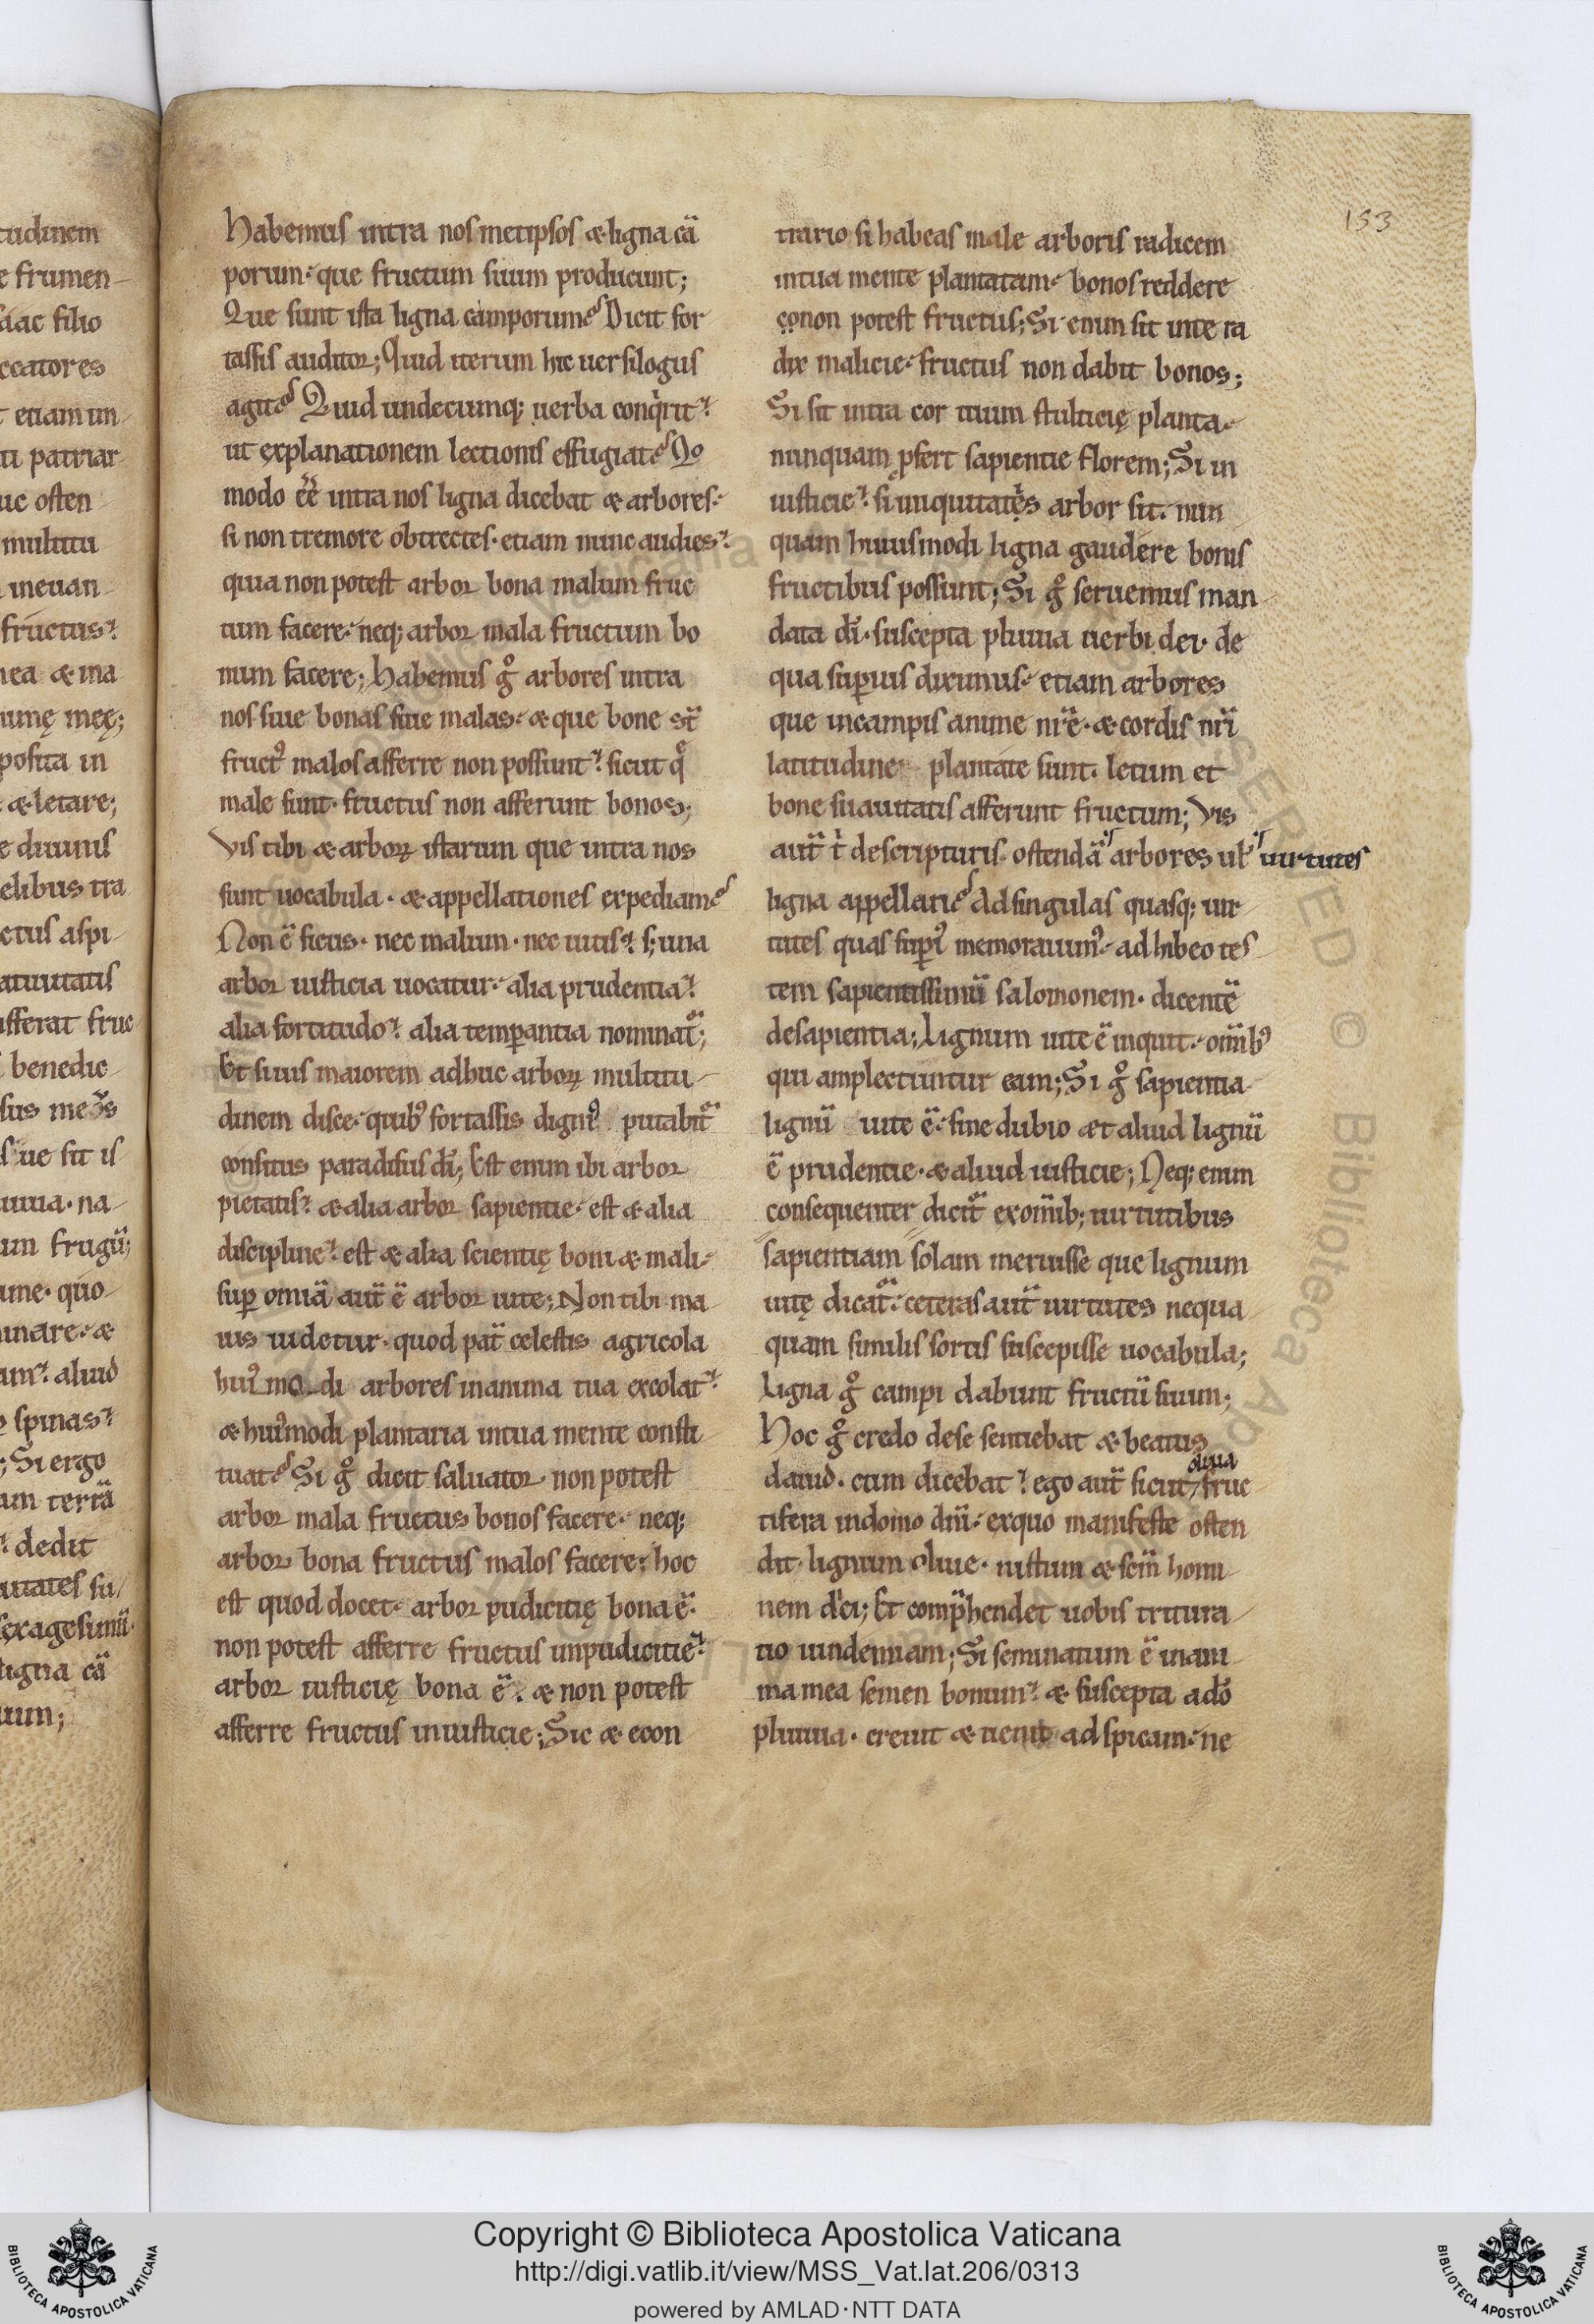 153
tudinem
e frumen-
saac filio
ccatores
t etiam un-
ti patriar
uc osten-
multitu
ineuan-
fructus
nea & ma
imę meę;
posita in
& letare;
e diuinis
elibus tra
ctus aspi-
atiuitatis
fferat fruc
benedic-
sus
s ue sit is
uuia. na-
um frugū;
me. quo-
inare. &
um. aliud
spinas
; Si ergo
am terrā
dedit
uitates su
sexagesimū.
ligna cā
uum;
Habemus intra nosmetipsos & ligna cā
porum. que fructum suum producunt;
Que sunt ista ligna camporum? Dicit for
tassis auditor; Quid iterum hic uersilogus
agit? Quid undecumq; uerba conqirit.
ut explanationem lectionis effugiat? Qo
modo ēē intra nos ligna dicebat & arbores.
si non tremore obtrectes. etiam nunc audies.
quia non potest arbor bona malum fruc
tum facere. neq; arbor mala fructum bo
num facere; Habemus gͦ arbores intra
nos siue bonas siue malas. & que bone st̄
fruct᾽ malos afferre non possunt. sicut qͤ
male sunt. fructus non afferunt bonos;
Vis tibi & arborꝝ istarum que intra nos
sunt uocabula. & appellationes expediam?
Non ē ficus. nec malum. nec uitis. s; una
arbor iusticia uocatur. alia prudentia.
alia fortitudo. alia temꝑantia nominat̄;
Et si uis maiorem adhuc arborꝝ multitu-
dinem disce. quib᾽ fortassis digni᾽ putabit̄
consitus paradisus dī; Est enim ibi arbor
pietatis. & alia arbor sapientie. est & alia
discipline. est & alia scientię boni & mali.
suꝑ omīa aut̄ ē arbor uite; Non tibi ma
uis uidetur. quod pat̄ celestis agricola
hui᾽modi arbores in anima tua excolat.
& hui᾽modi plantaria in tua mente consti-
tuat? Si gͦ dicit saluator non potest
arbor mala fructus bonos facere. neq;
arbor bona fructus malos facere. hoc
est quod docet. arbor pudicitię bona ē.
non potest afferre fructus impudicitie.
arbor iusticię bona ē. & non potest
afferre fructus iniusticie; Sic & econ
trario si habeas male arboris radicem
in tua mente plantatam. bonos reddere
eo non potest fructus; Si enim sit in te ra
dix malicie. fructus non dabit bonos;
Si sit intra cor tuum stulticię planta.
nunquam ꝓfert sapientie florem; Si in
iusticie. si iniquitatis arbor sit. nun
quam huiusmodi ligna gaudere bonis
fructibus possunt; Si gͦ seruemus man-
data dī. suscepta pluuia uerbi dei. de
qua suꝑius diximus. etiam arbores
que in campis anime nr̄ē. & cordis nr̄i
latitudine plantate sunt. letum et
bone suauitatis afferunt fructum; Vis
aut̄ t̓ descripturis. ostendā arbores ul̄ uirtutes
ligna appellari? Ad singulas quasq; uir-
tutes quas suꝑi᾽ memorauim᾽. adhibeo tes-
tem sapientissimū salomonem. dicentē
desapientia; Lignum uite ē inquit. om̄ib᾽
qui amplectuntur eam; Si gͦ sapientia
lignū uite ē. sine dubio &t aliud lignū
ē prudentie. & aliud iusticie; Neq; enim
consequenter dicit̄ exom̄ib; uirtutibus
sapientiam solam meruisse que lignum
uitę dicat̄. ceteras aut̄ uirtutes nequa-
quam similis sortis suscepisse uocabula;
Ligna gͦ campi dabunt fructū suum;
Hoc gͦ credo dese sentiebat & beatus
dauid. cum dicebat. ego aut̄ sicut oliua fruc-
tifera indomo dn̄i. exquo manifeste osten
dit. lignum oliue. iustum & sc̄m homi-
nem dici; Et comp̄hendet uobis tritura-
tio uindemiam; Si seminatum ē inani-
ma mea semen bonum. & suscepta ado᾽
pluuia. creuit & uenit adspicam. ne
Copyright © Biblioteca Apostolica Vaticana
http://digi.vatlib.it/view/MSS_Vat.lat.206/0313
powered by AMLAD·NTT DATA
BIBLIOTECA APOSTOLICA VATICANA
BIBLIOTECA APOSTOLICA VATICANA